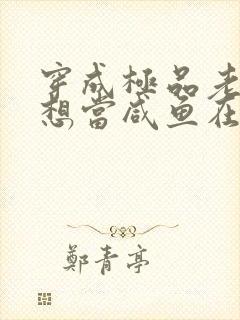 穿成極品老
想當咸鱼在
鄭青亭